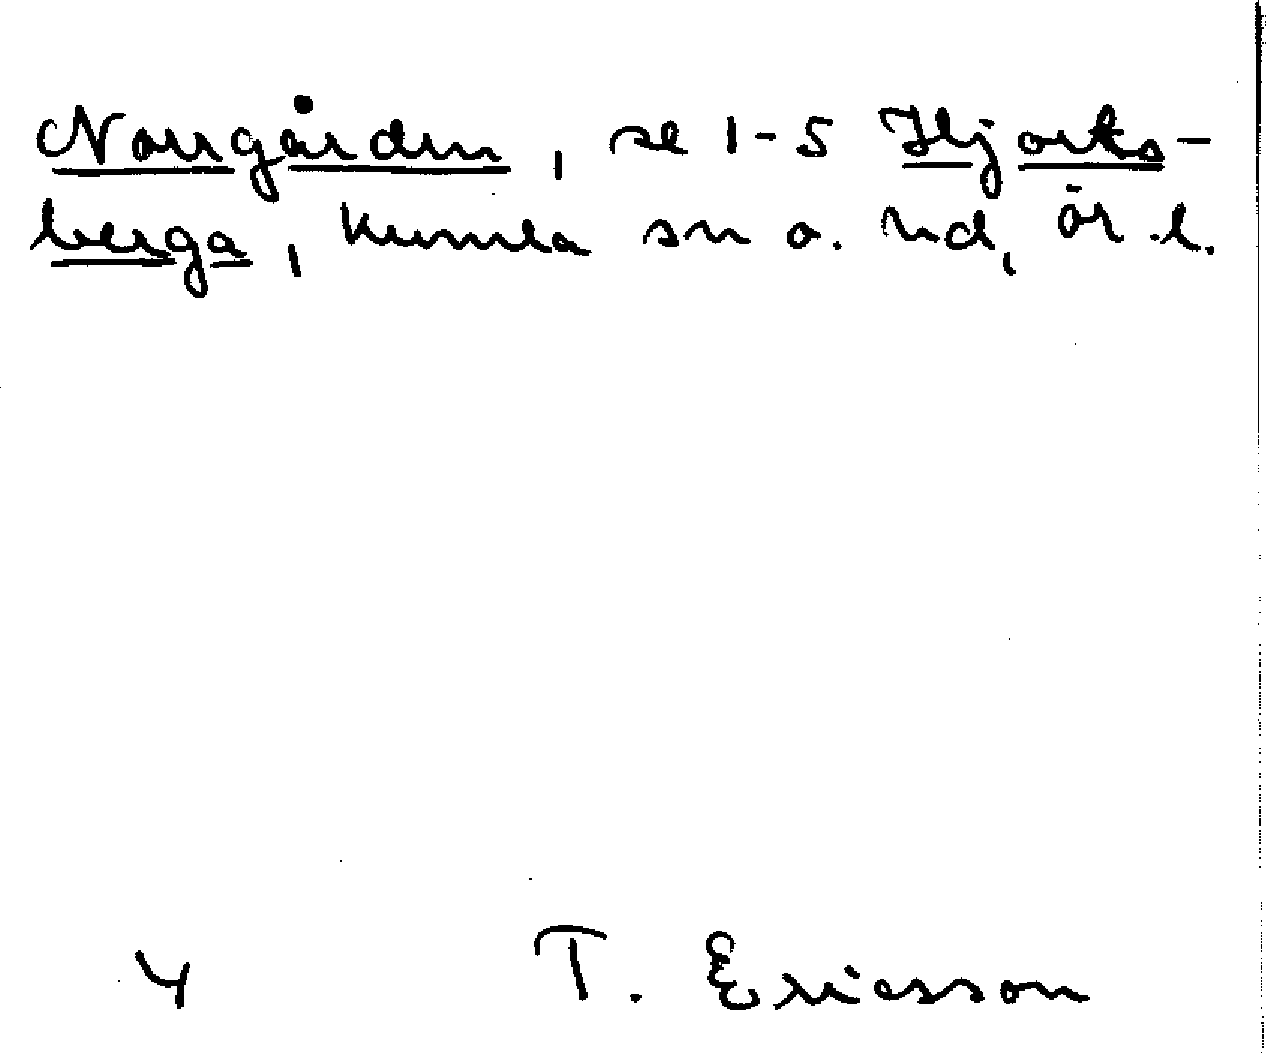 Norrgården, se 1-5 Hjorts-
berga, Kumla sn o. hd, Ör. l.
4 T. Ericsson